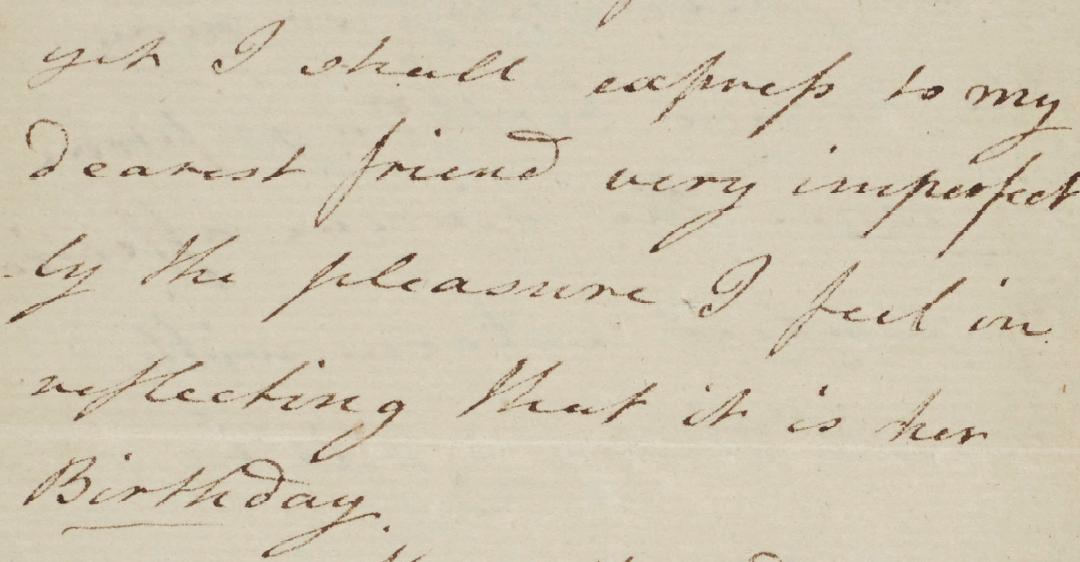 yet I shall express to my
dearest friend very imperfect
-ly the pleasure I feel in
reflecting that it is her
Birthday.